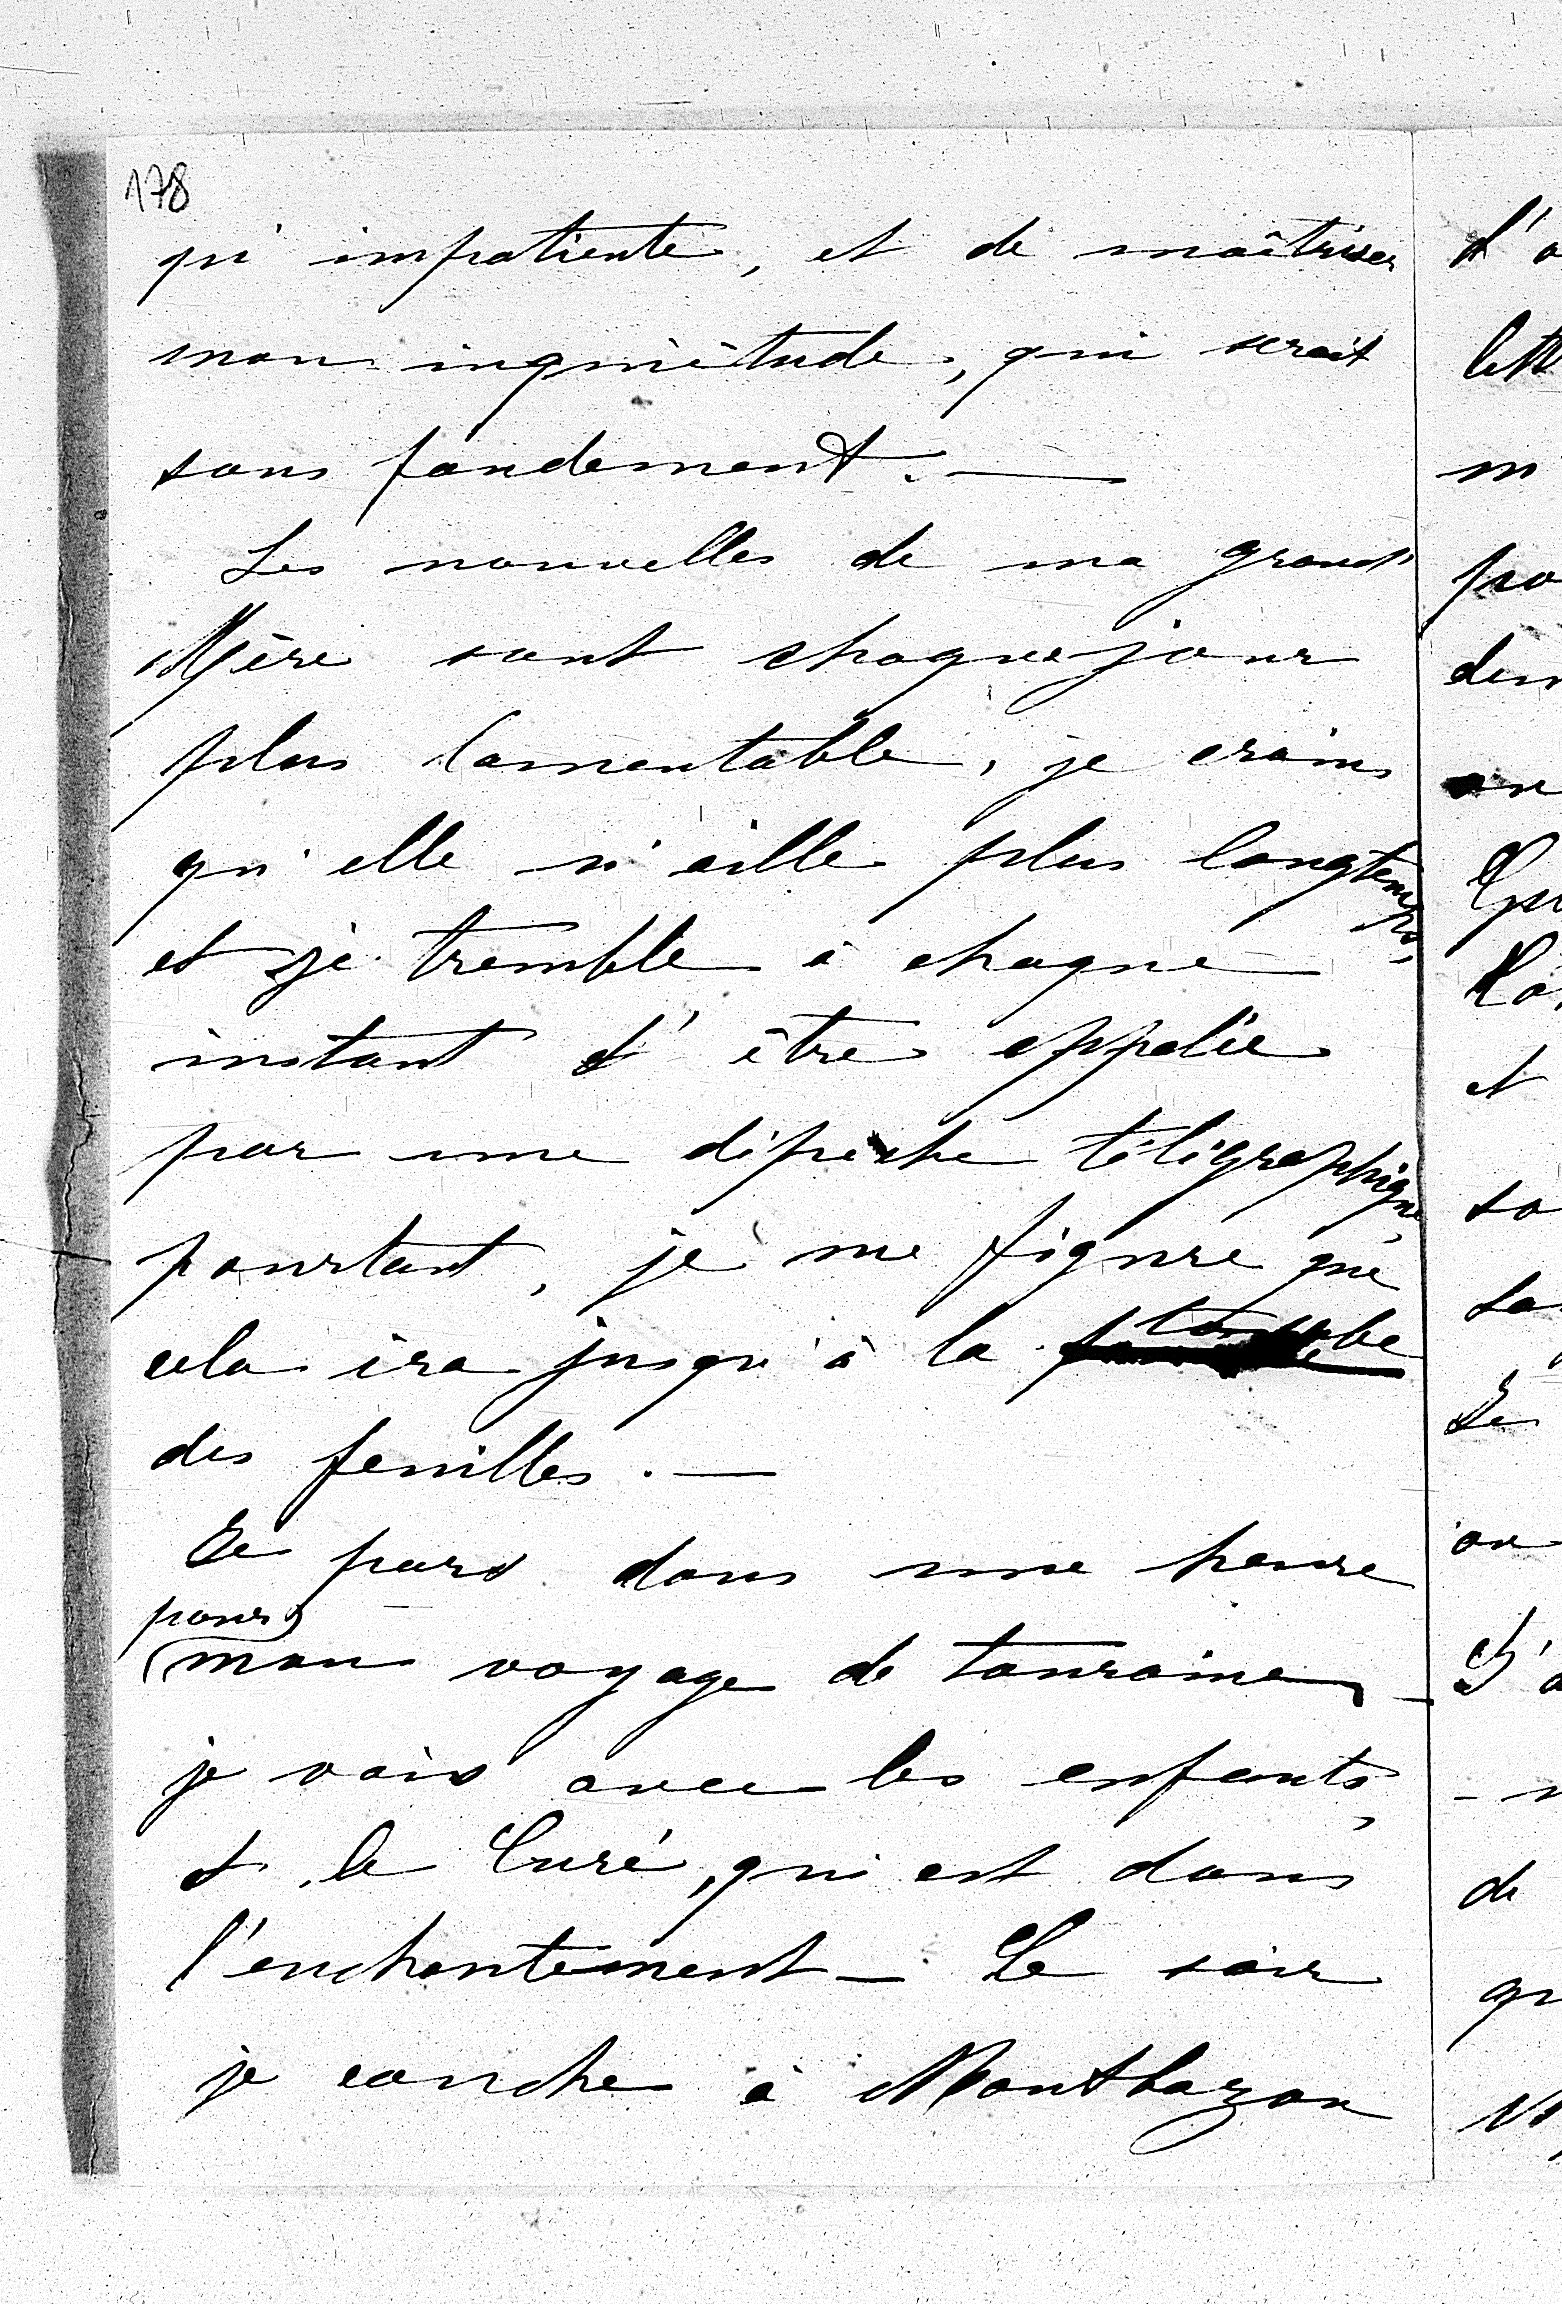 178
qu'impatiente, et de maîtriser
mon inquiètude, qui serait
sans fondement. —
Les nouvelles de ma grand'
Mère sont chaque jour
plus lamentable, je crains
qu'elle n'aille plus longtemps.
et je tremble à chaque
instant d'être appelée
par une dépêche télégraphique
pourtant, je me figure que
cela ira jusqu'à la tombe
des feuilles. —
Je pars dans une heure
pour
mon voyage de touraine —
je vais avec les enfants,
et le Curé, qui est dans
l'enchantement — Le soir
je couche à Montbazon
d'a
lett
m
po
dem
on
et
so
sa
Je
on
J'a
- n
de
qu